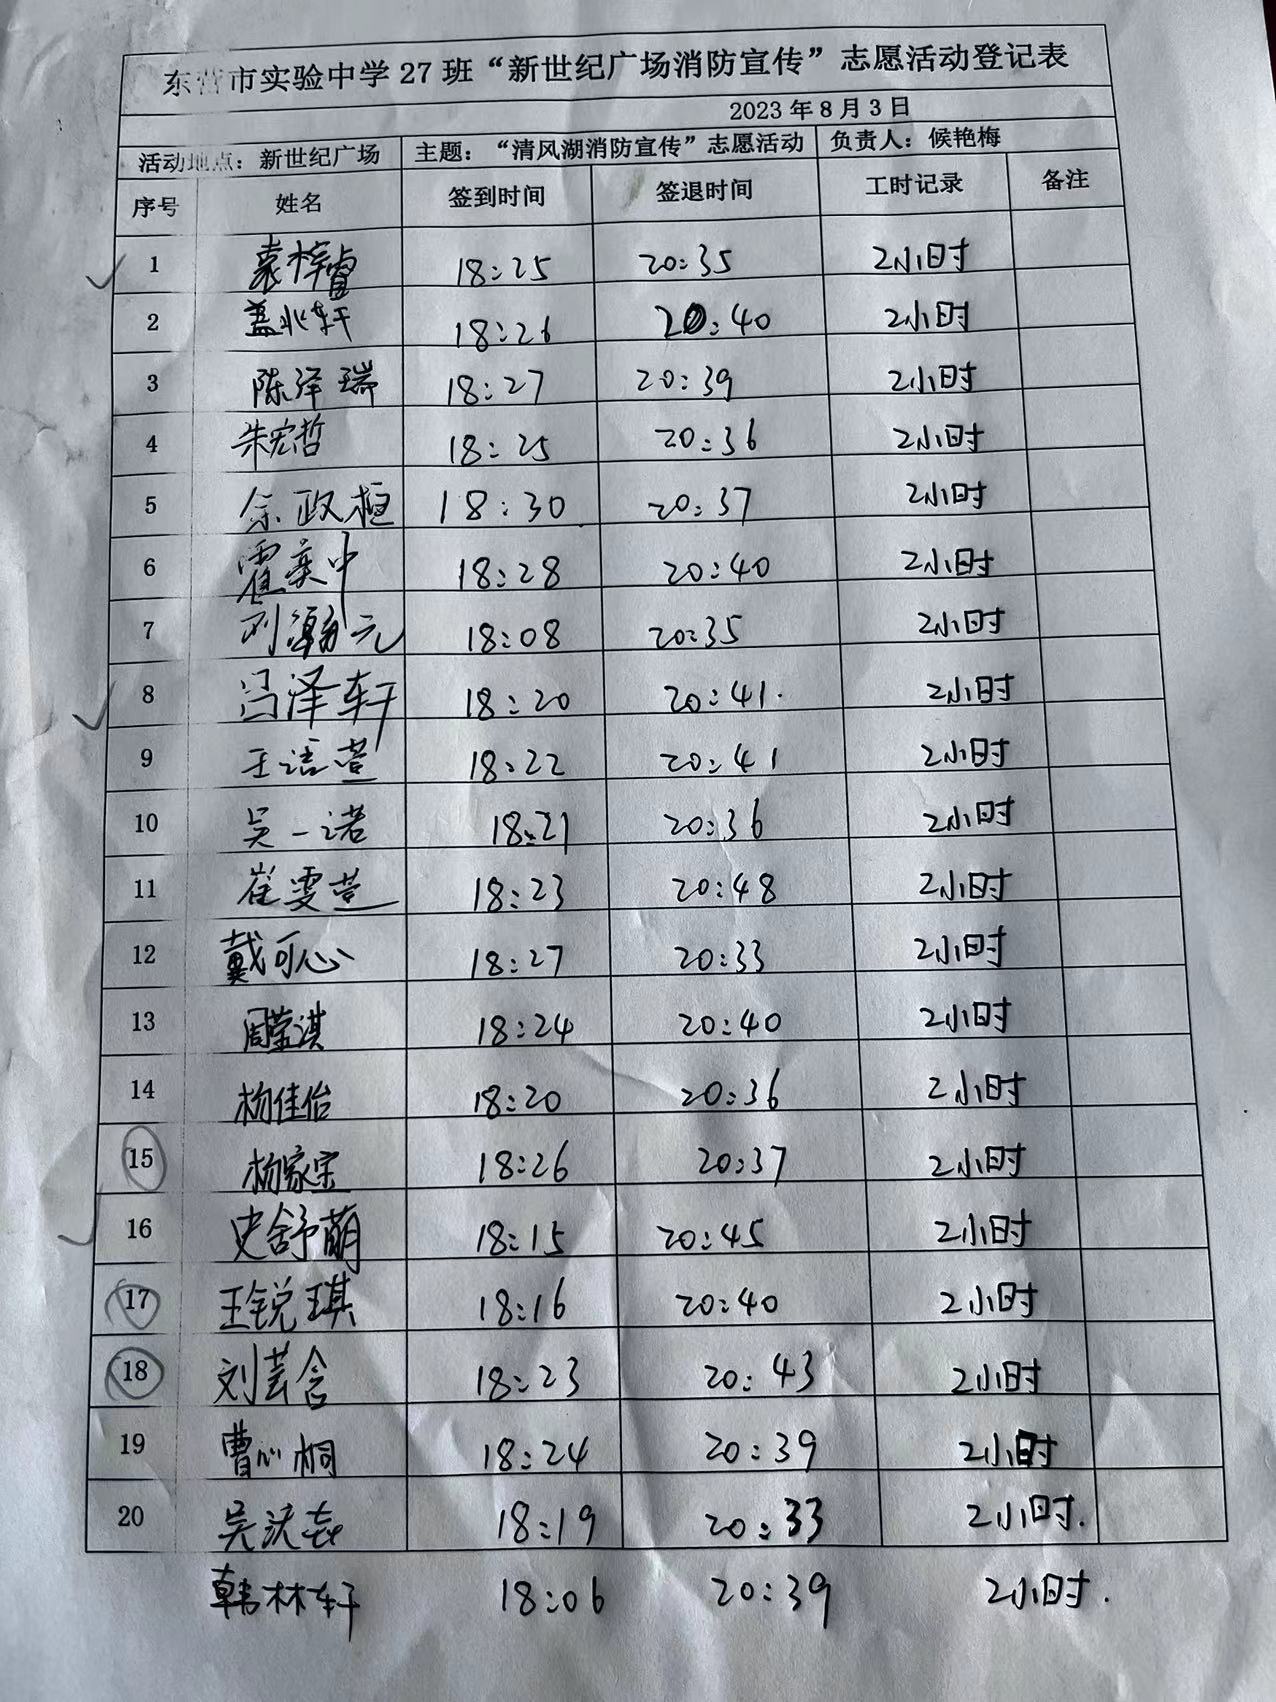 东营市实验中学 27 班“新世纪广场消防宣传”志愿活动登记表
2023 年 8 月 3 日
活动地点：新世纪广场 主题：“清风湖消防宣传”志愿活动 负责人：候艳梅
序号 姓名 签到时间 签退时间 工时记录 备注
1 袁梓睿 18:25 20:35 2小时
2 盖兆轩 18:26 20:40 2小时
3 陈泽瑞 18:27 20:39 2小时
4 朱宏哲 18:25 20:36 2小时
5 余政桓 18:30 20:37 2小时
6 霍奕中 18:28 20:40 2小时
7 刘瀚元 18:08 20:35 2小时
8 冯泽轩 18:20 20:41 2小时
9 王洁萱 18:22 20:41 2小时
10 吴一诺 18:21 20:36 2小时
11 崔雯萱 18:23 20:48 2小时
12 戴可心 18:27 20:33 2小时
13 周荣淇 18:24 20:40 2小时
14 杨佳怡 18:20 20:36 2小时
15 杨家宝 18:26 20:37 2小时
16 史舒萌 18:15 20:45 2小时
17 王锐琪 18:16 20:40 2小时
18 刘芸含 18:23 20:43 2小时
19 曹心桐 18:24 20:39 2小时
20 吴 18:19 20:33 2小时.
韩林轩 18:06 20:39 2小时.